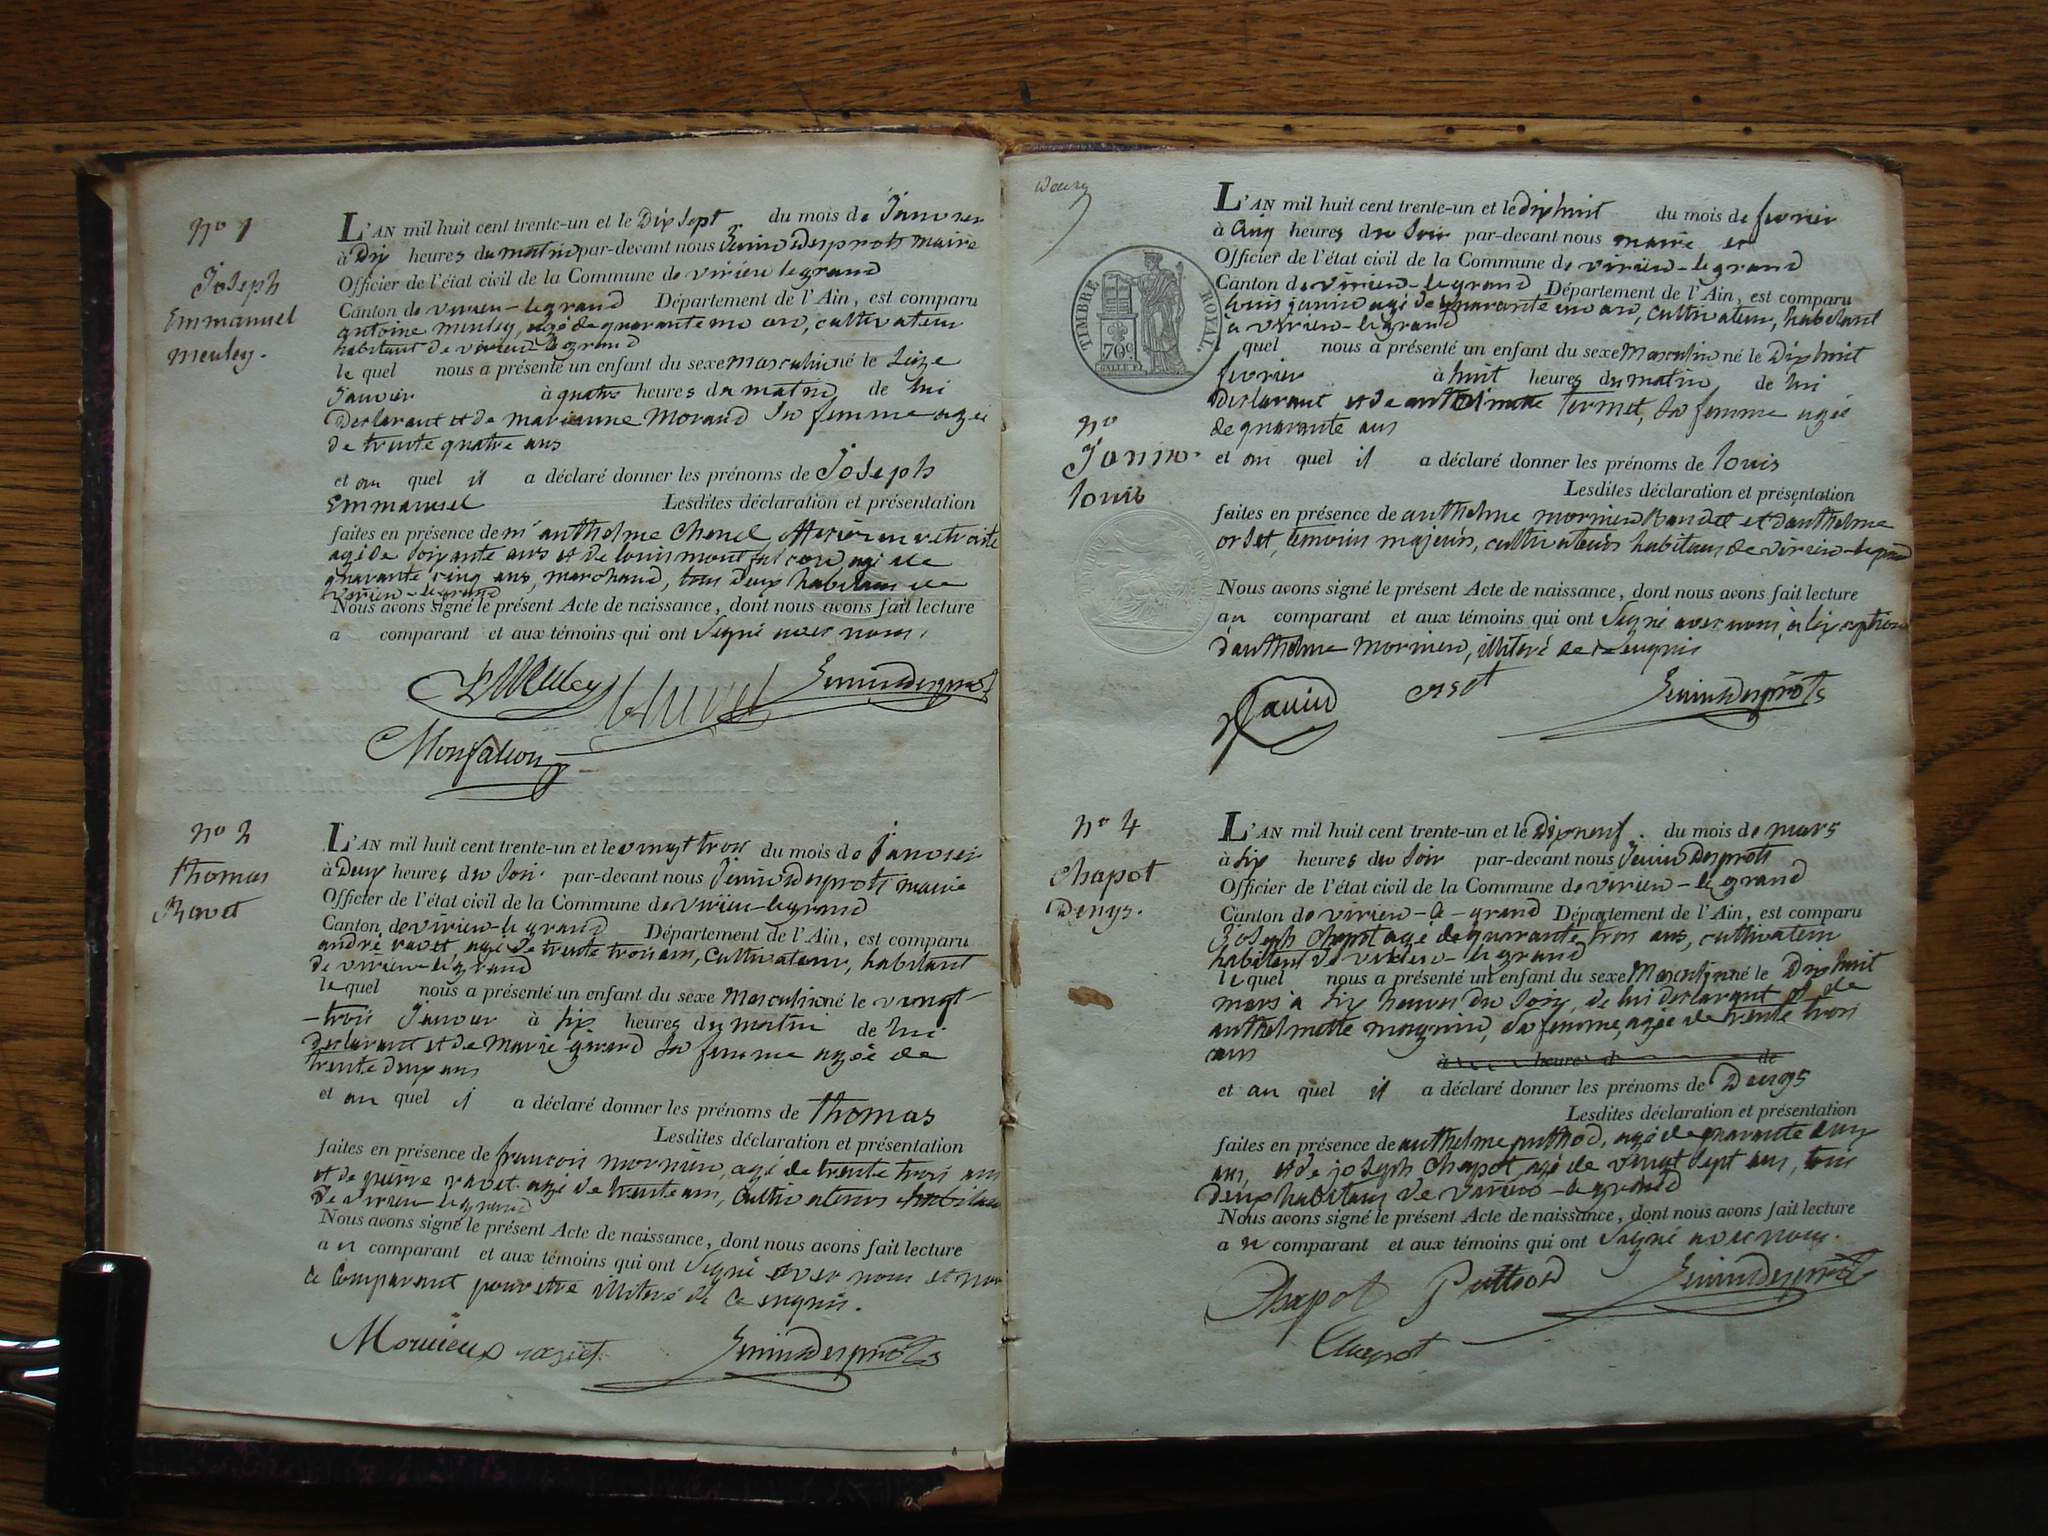 nº 1
Joseph
Emmanuel
meuley.
L'AN mil huit cent trente-un et le Dix Sept du mois de Janvier
à Dix heures du matin par-devant nous Jenin Desprots maire
Officier de l'état civil de la Commune de virieu le grand
Canton de virieu-le grand Département de l'Ain, est comparu
antoine meuley, agé de quarante un an, cultivateur
habitant de virieu le grand
le quel nous a présenté un enfant du sexe masculin né le Seize
Janvier à quatre heures du matin de lui
Declarant et de marianne Morand Sa femme agée
de trente quatre ans
et au quel il a déclaré donner les prénoms de Joseph
Emmanuel Lesdites déclaration et présentation
faites en présence de mr anthelme Chenel officier en retraite
agé de Soixante ans et de louis montfalcon, agé de
quarante cinq ans, marchand, tous deux habitans de
virieu-le grand
Nous avons signé le présent Acte de naissance, dont nous avons fait lecture
a comparant et aux témoins qui ont Signé avec nous.
Meuley Jenin Desprots
Monfalcon
nº 2
thomas
Ravet
L'AN mil huit cent trente-un et le vingt trois du mois de Janvier
à Deux heures du Soir par-devant nous Jenin Desprots maire
Officier de l'état civil de la Commune de virieu-le grand
Canton de virieu-le grand Département de l'Ain, est comparu
andré ravet, agé de trente trois ans, cultivateur, habitant
de virieu-le grand
le quel nous a présenté un enfant du sexe Masculin né le vingt-
-trois Janvier à Six heures du matin de lui
Declarant et de Marie girard Sa femme agée de
trente deux ans
et au quel il a déclaré donner les prénoms de thomas
Lesdites déclaration et présentation
faites en présence de francois mornieu, agé de trente trois ans
et de pierre ravet agé de trente ans, Cultivateurs habitans
de virieu le grand
Nous avons signé le présent Acte de naissance, dont nous avons fait lecture
au comparant et aux témoins qui ont Signé avec nous et non
Le Comparant pour etre illiteré de Ce enquis.
Mornieux ravet Jenin Desprots
TIMBRE ROYAL.
70c
nº
Janin.
louis
L'AN mil huit cent trente-un et le dix huit du mois de fevrier
à Cinq heures du Soir par-devant nous maire et
Officier de l'état civil de la Commune de virieu-le grand
Canton de virieu-le grand Département de l'Ain, est comparu
louis janin agé de quarante un an, cultivateur, habitant
à virieu-le grand
quel nous a présenté un enfant du sexe Masculin né le Dix huit
fevrier à huit heures du matin de lui
Declarant et de anthelmette termet, Sa femme agée
de quarante ans
et au quel il a déclaré donner les prénoms de louis
Lesdites déclaration et présentation
faites en présence de anthelme mornieu Baudet et d'anthelme
orset, temoins majeurs, cultivateurs habitans de virieu-le grand
Nous avons signé le présent Acte de naissance, dont nous avons fait lecture
au comparant et aux témoins qui ont Signé avec nous, à lexception
d'anthelme Mornieu, illiteré de ce enquis
Janin orset Jenin Desprots
nº 4
Chapot
Denys.
L'AN mil huit cent trente-un et le Dix neuf. du mois de mars
à Six heures du Soir par-devant nous Jenin Desprots
Officier de l'état civil de la Commune de virieu-le grand
Canton de virieu-le-grand Département de l'Ain, est comparu
Joseph Chapot agé de quarante trois ans, cultivateur
habitant de virieu-le grand
le quel nous a présenté un enfant du sexe Masculin né le Dix huit
mars à Six heures du Soir, de lui declarant et de
anthelmette magnin, Sa femme, agée de trente trois
ans à heures d de
et au quel il a déclaré donner les prénoms de Denys
Lesdites déclaration et présentation
faites en présence de anthelme putthod, agé de quarante deux
ans, et de joseph Chapot, agé de vingt Sept ans, tous
deux habitans de virieu-le grand
Nous avons signé le présent Acte de naissance, dont nous avons fait lecture
au comparant et aux témoins qui ont Signé avec nous.
Chapot Putthod Jenin Desprots
Chapot